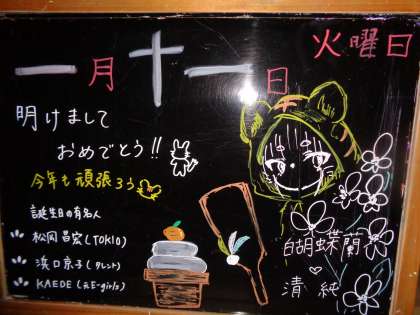 一月十一日 火曜日
明けまして
おめでとう!!
今年も頑張ろう
誕生日の有名人
松岡昌宏(TOKIO)
浜口京子(タレント)
KAEDE(元E-girls)
白胡蝶蘭
清純